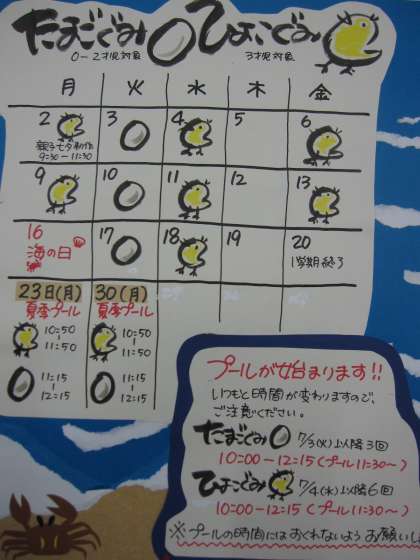 たまごぐみ ひよこぐみ
0-2才児対象 3才児対象
月 火 水 木 金
2 3 4 5 6
親子七夕制作
9:30-11:30
9 10 11 12 13
16 17 18 19 20
海の日 1学期終了
23日(月) 30(月)
夏季プール 夏季プール
10:50 10:50
11:50 11:50
11:15 11:15
12:15 12:15
プールが始まります!!
いつもと時間が変わりますので、
ご注意ください。
たまごぐみ 7/3(火)以降3回
10:00-12:15(プール11:30~)
ひよこぐみ 7/4(水)以降6回
10:00-12:15(プール11:30~)
※プールの時間にはおくれないようお願いし